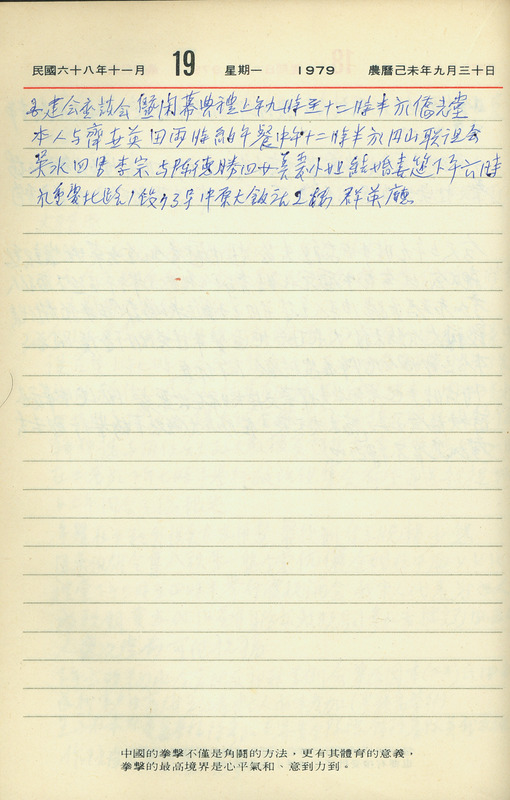 民國六十八年十一月 19 星期一 1979 農曆己未年九月三十日
建会座談会暨閉幕典禮上午九時至十二時半於僑光堂
本人与齊世英田雨時約午餐中午十二時半於円山联谊会
吳水四男李宗与陳德勝四女美小姐結婚喜筵下午六時
中泰大飯店2楼群英廳
中國的拳擊不僅是角鬪的方法，更有其體育的意義，
拳擊的最高境界是心平氣和、意到力到。